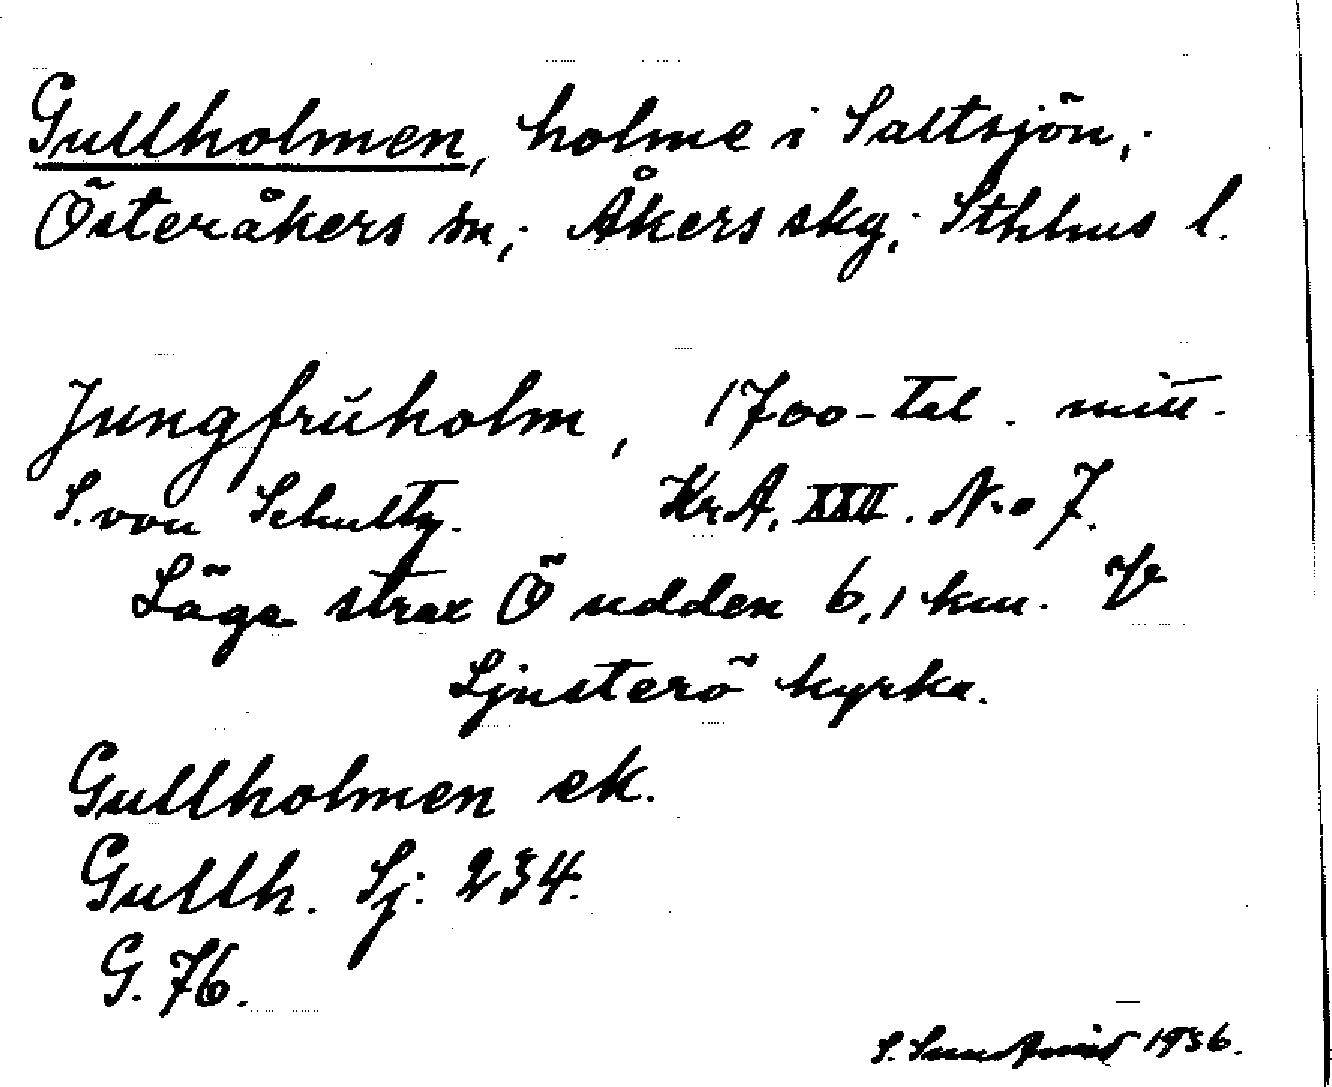 Gullholmen, holme i Saltsjön,
Österåkers sn; Åkers skg; Sthlms l.
Jungfruholm, 1700-tal. mitt.
S. von Schultz. KrA. XXII. No 7.
Läge strax Ö udden 6,1 km.
Ljusterö kyrka.
Gullholmen ek.
Gullh. Sj: 234.
G. 76.
S. 1936.